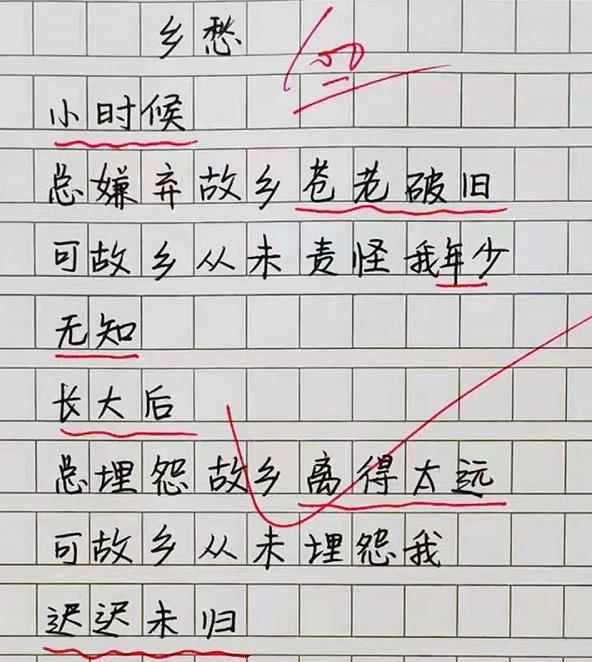 乡愁
100
小时候
总嫌弃故乡苍老破旧
可故乡从未责怪我年少
无知
长大后
总埋怨故乡离得太远
可故乡从未埋怨我
迟迟未归